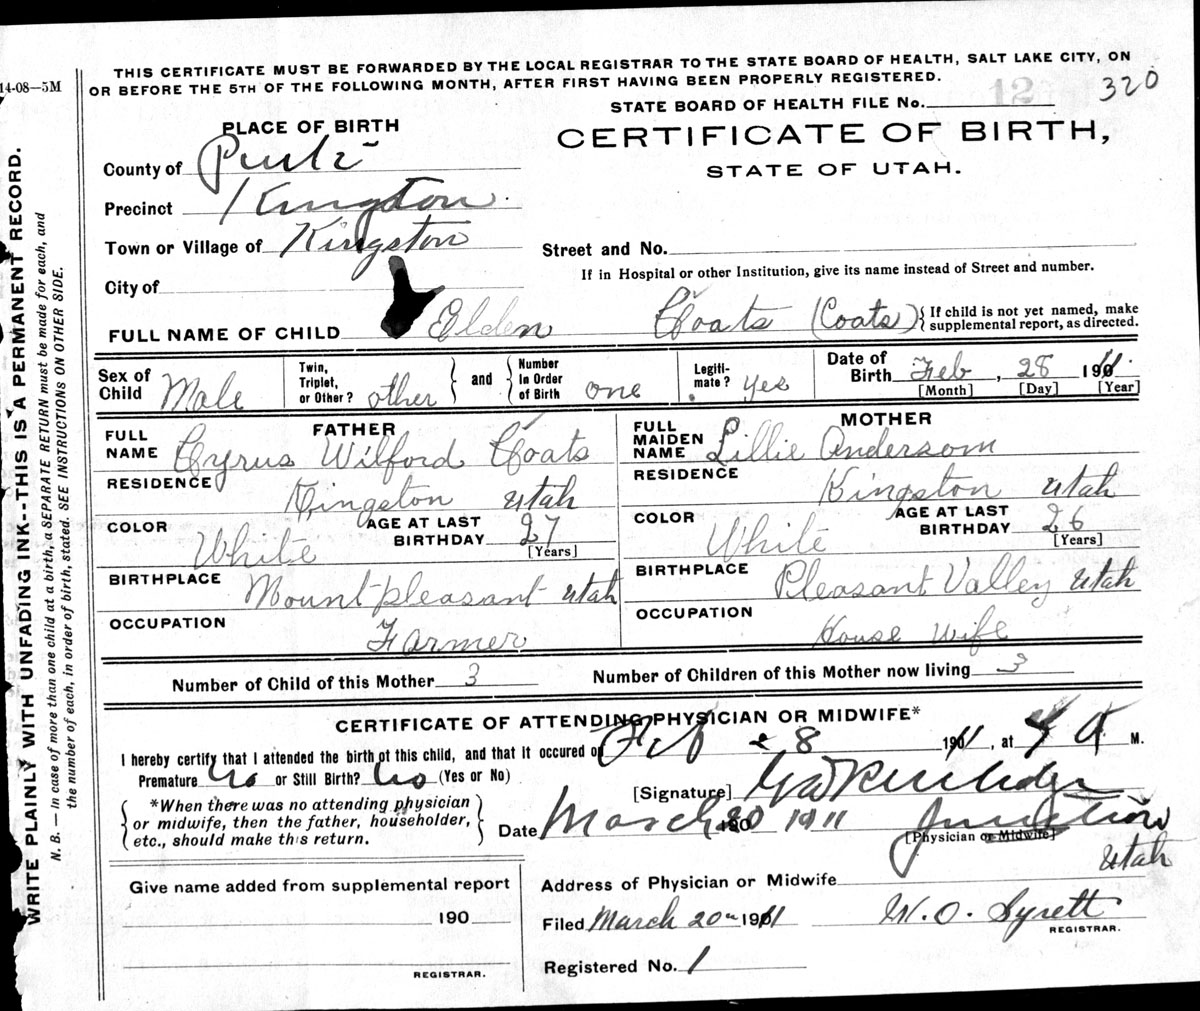 THIS CERTIFICATE MUST BE FORWARDED BY THE LOCAL REGISTRAR TO THE STATE BOARD OF HEALTH, SALT LAKE CITY, ON
OR BEFORE THE 5TH OF THE FOLLOWING MONTH, AFTER FIRST HAVING BEEN PROPERLY REGISTERED.
14-08—5M
STATE BOARD OF HEALTH FILE No. 12 320
PLACE OF BIRTH
CERTIFICATE OF BIRTH,
STATE OF UTAH.
County of
Precinct Kingston
Town or Village of Kingston
Street and No.
If in Hospital or other Institution, give its name instead of Street and number.
City of
FULL NAME OF CHILD Elden Coats (Coats) { If child is not yet named, make
supplemental report, as directed.
Sex of Child Male
Twin, Triplet, or Other? other } and { Number In Order of Birth one
Legiti-mate? yes
Date of Birth Feb, 28 1911
[Month] [Day] [Year]
FATHER
FULL NAME Cyrus Wilford Coats
RESIDENCE Kingston Utah
COLOR White
AGE AT LAST BIRTHDAY 27
[Years]
BIRTHPLACE Mount pleasant Utah
OCCUPATION Farmer
MOTHER
FULL MAIDEN NAME Lillie Andersom
RESIDENCE Kingston Utah
COLOR White
AGE AT LAST BIRTHDAY 26
[Years]
BIRTHPLACE Pleasant Valley Utah
OCCUPATION House Wife
Number of Child of this Mother 3
Number of Children of this Mother now living 3
CERTIFICATE OF ATTENDING PHYSICIAN OR MIDWIFE*
I hereby certify that I attended the birth of this child, and that it occured on Feb 28 1911, at A M.
Premature No or Still Birth? No (Yes or No)
[Signature]
{ *When there was no attending physician
or midwife, then the father, householder,
etc., should make this return. }
Date March 20 1911 Junction
[Physician or Midwife]
Utah
Give name added from supplemental report
190
REGISTRAR.
Address of Physician or Midwife
Filed March 20 1911 W. O. Syrett
REGISTRAR.
Registered No. 1
WRITE PLAINLY WITH UNFADING INK--THIS IS A PERMANENT RECORD.
N. B. — In case of more than one child at a birth, a SEPARATE RETURN must be made for each, and
the number of each, in order of birth, stated. SEE INSTRUCTIONS ON OTHER SIDE.